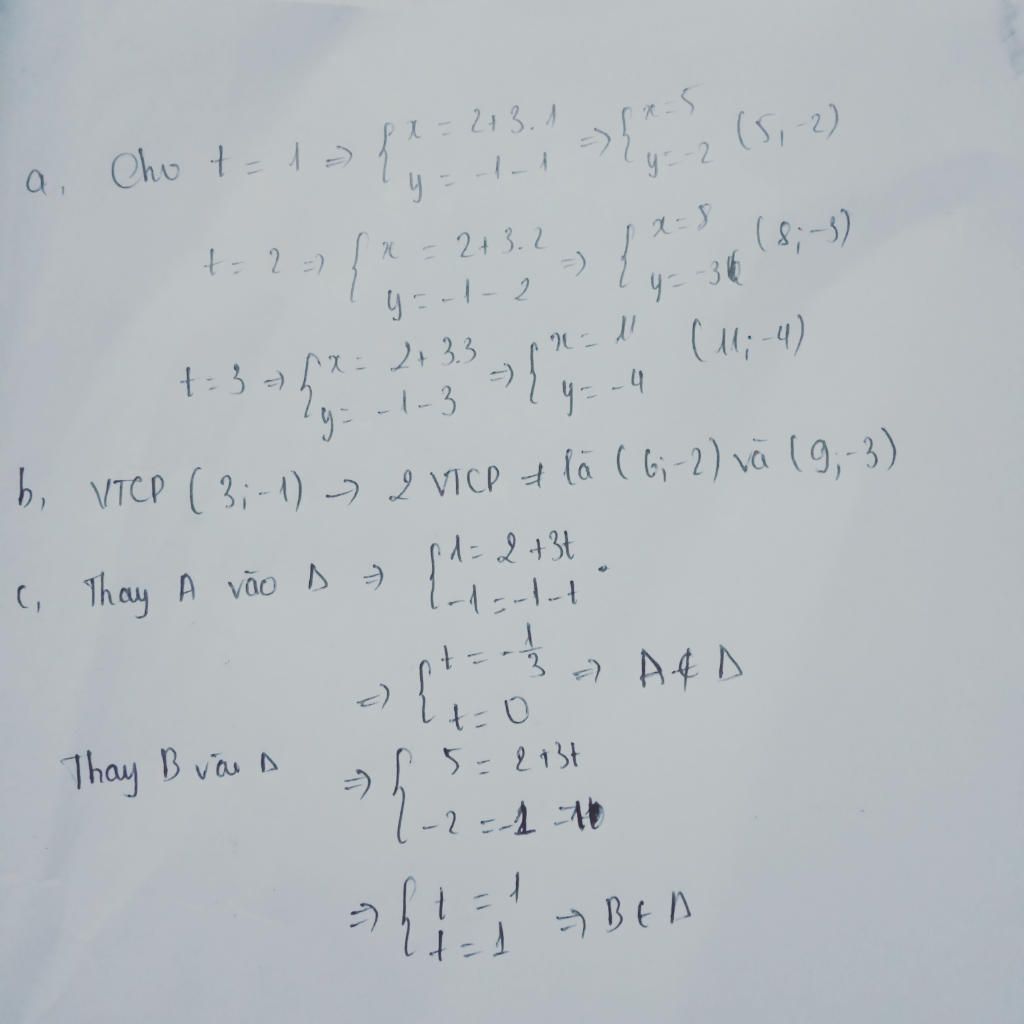 a, Cho t = 1 ⇒ { x = 2+3.1 ; y = -1-1 ⇒ { x = 5 ; y = -2 (5, -2)
t = 2 ⇒ { x = 2+3.2 ; y = -1-2 ⇒ { x = 8 ; y = -3 (8; -3)
t = 3 ⇒ { x = 2+3.3 ; y = -1-3 ⇒ { x = 11 ; y = -4 (11; -4)
b, VTCP (3; -1) → 2 VTCP ≠ là (6; -2) và (9; -3)
c, Thay A vào Δ ⇒ { 1 = 2+3t ; -1 = -1-t .
⇒ { t = -1/3 ; t = 0 ⇒ A ∉ Δ
Thay B vào Δ ⇒ { 5 = 2+3t ; -2 = -1
⇒ { t = 1 ; t = 1 ⇒ B ∈ Δ